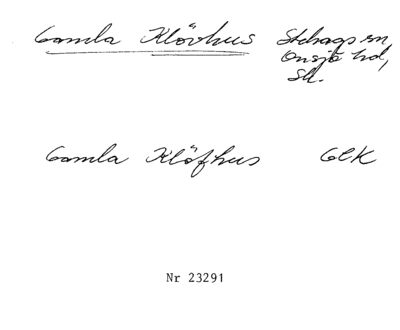 Gamla Klövhus Stehags sn
Onsjö hd,
Sk.
Gamla Klöfhus GEK
Nr 23291